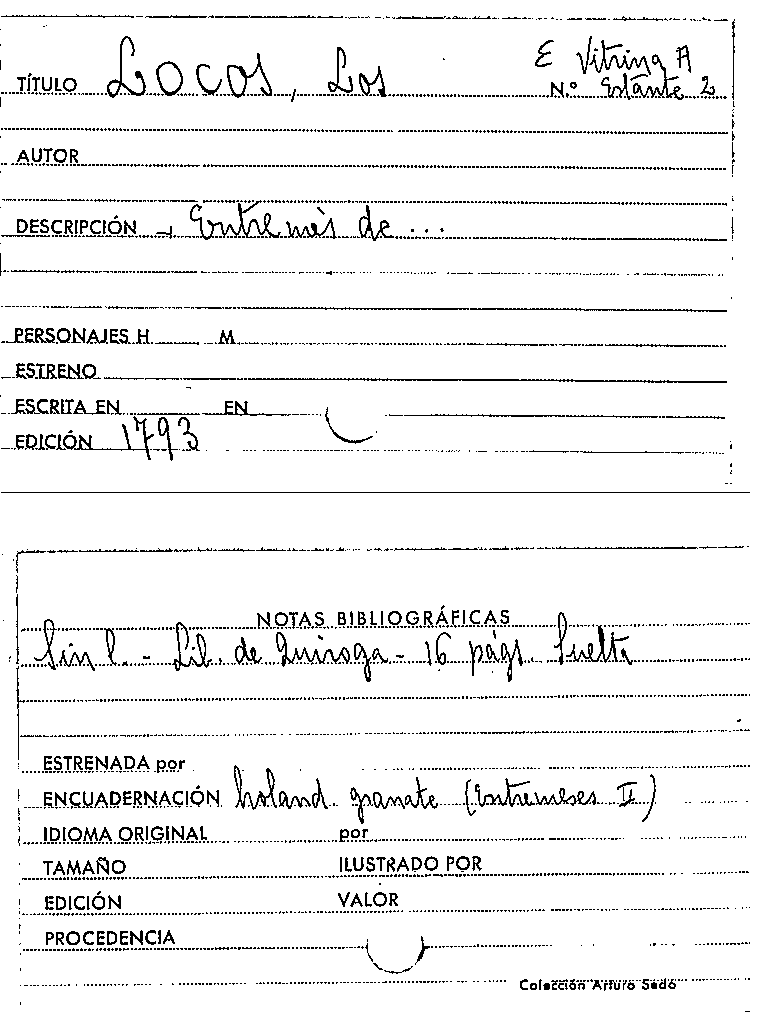 E Vitrina A
TÍTULO LOCOS, Los N.º Estante 2
AUTOR
DESCRIPCIÓN → Entremés de ...
PERSONAJES H M
ESTRENO
ESCRITA EN EN
EDICIÓN 1793
NOTAS BIBLIOGRÁFICAS
Sin l. - Lib. de Quiroga - 16 págs. Suelta
ESTRENADA por
ENCUADERNACIÓN holand. granate (Entremeses II)
IDIOMA ORIGINAL por
TAMAÑO ILUSTRADO POR
EDICIÓN VALOR
PROCEDENCIA
Colección Arturo Sedó